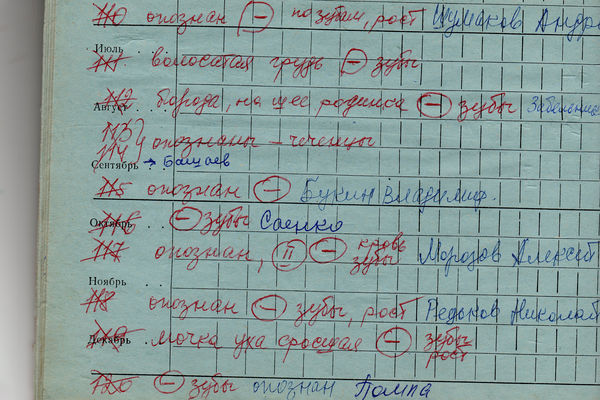 110 опознан (–) по зубам, рост Шумаков Андр
Июль
111 волосатая грудь (–) зубы
Август 112 борода, на шее родинка (–) зубы
113, 114 опознаны – чеченцы
Сентябрь → Башаев
115 опознан (–) Букин Владимир.
Октябрь 116 (–) зубы Саенко
117 опознан, (II) (–) кровь зубы Морозов Алексей
Ноябрь
118 опознан (–) зубы, рост Редьков Николай
Декабрь 119 мочка уха сросшая (–) зубы рост
120 (–) зубы опознан Помпа